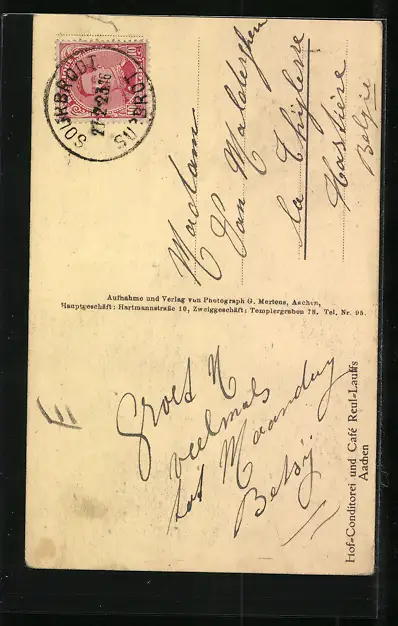 SOURBRODT
27-2-23 16
SOURBRODT
Madam
Van
la
Hastière
Belgie
Aufnahme und Verlag von Photograph G. Mertens, Aachen,
Hauptgeschäft: Hartmannstraße 10, Zweiggeschäft: Templergraben 78. Tel. Nr. 95.
Groet U
veelmals
tot Maandag
Betsy
Hof-Conditorei und Café Reul-Lauffs
Aachen